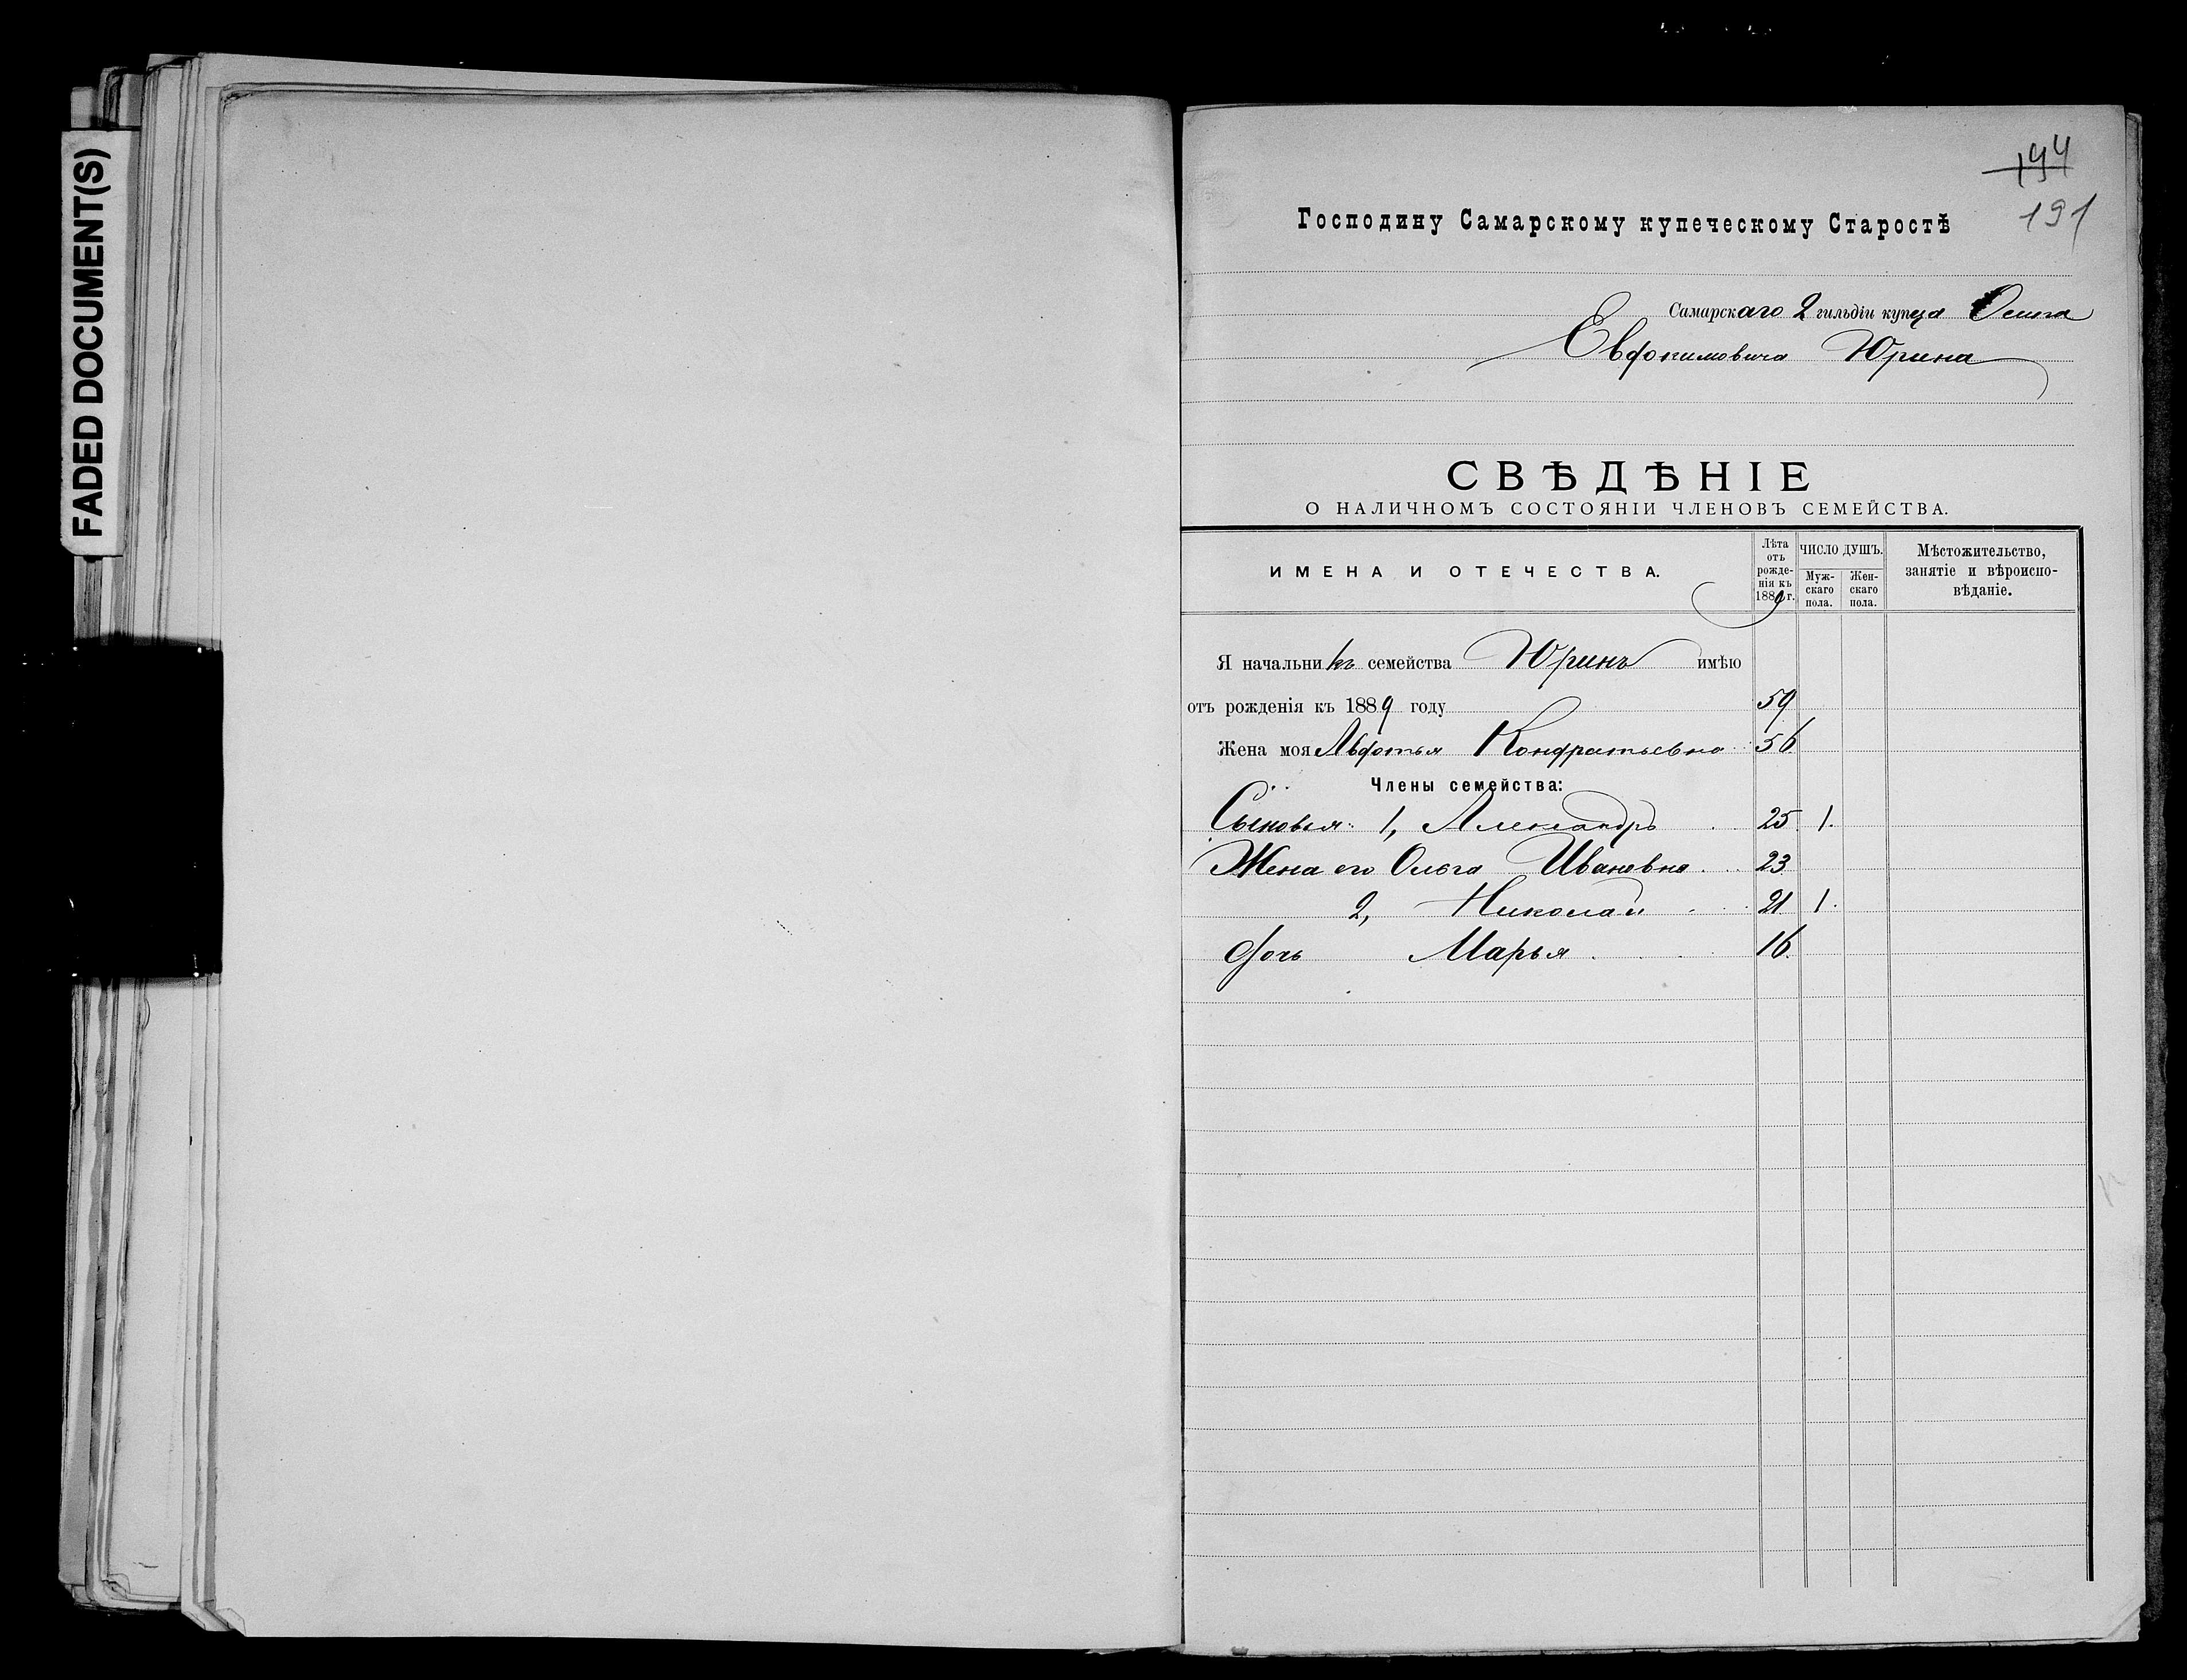 FADED DOCUMENT(S)
194
191
Господину Самарскому купеческому Старостѣ
Самарскаго 2 гильдіи купца Осипа
Евдокимовича Юрина
СВѢДѢНІЕ
О НАЛИЧНОМЪ СОСТОЯНІИ ЧЛЕНОВЪ СЕМЕЙСТВА.
ИМЕНА И ОТЕЧЕСТВА.
Лѣта отъ рожде-нія къ 1889 г.
ЧИСЛО ДУШЪ.
Муж-скаго пола.
Жен-скаго пола.
Мѣстожительство, занятіе и вѣроиспо-вѣданіе.
Я начальникъ семейства Юринъ имѣю
отъ рожденія къ 1889 году 59
Жена моя Авдотья Кондратьевна 56
Члены семейства:
Сыновья: 1, Александръ 25 1.
Жена его Ольга Ивановна 23
2, Николай 21 1.
дочь Марья 16